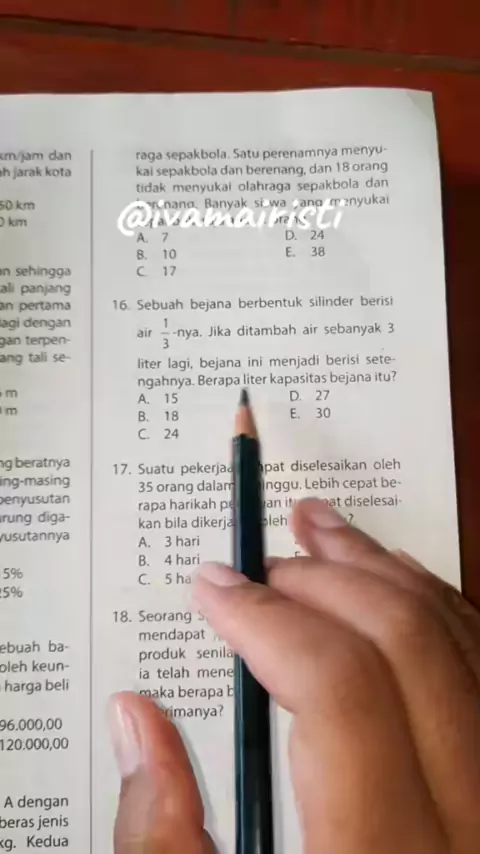 km/jam dan
h jarak kota
50 km
0 km
n sehingga
ali panjang
an pertama
lagi dengan
gan terpen-
ang tali se-
m
m
ng beratnya
ing-masing
penyusutan
rung diga-
yusutannya
5%
25%
ebuah ba-
oleh keun-
harga beli
96.000,00
120.000,00
A dengan
beras jenis
kg. Kedua
raga sepakbola. Satu perenamnya menyu-
kai sepakbola dan berenang, dan 18 orang
tidak menyukai olahraga sepakbola dan
Banyak menyukai
@ivamairisti
A. 7 D. 24
B. 10 E. 38
C. 17
16. Sebuah bejana berbentuk silinder berisi
air 1/3-nya. Jika ditambah air sebanyak 3
liter lagi, bejana ini menjadi berisi sete-
ngahnya. Berapa liter kapasitas bejana itu?
A. 15 D. 27
B. 18 E. 30
C. 24
17. Suatu diselesaikan oleh
35 orang dalam Lebih cepat be-
rapa harikah diselesai-
kan bila
A. 3 hari
B. 4 hari
C. 5
18. Seorang
mendapat
produk
ia telah
maka berapa